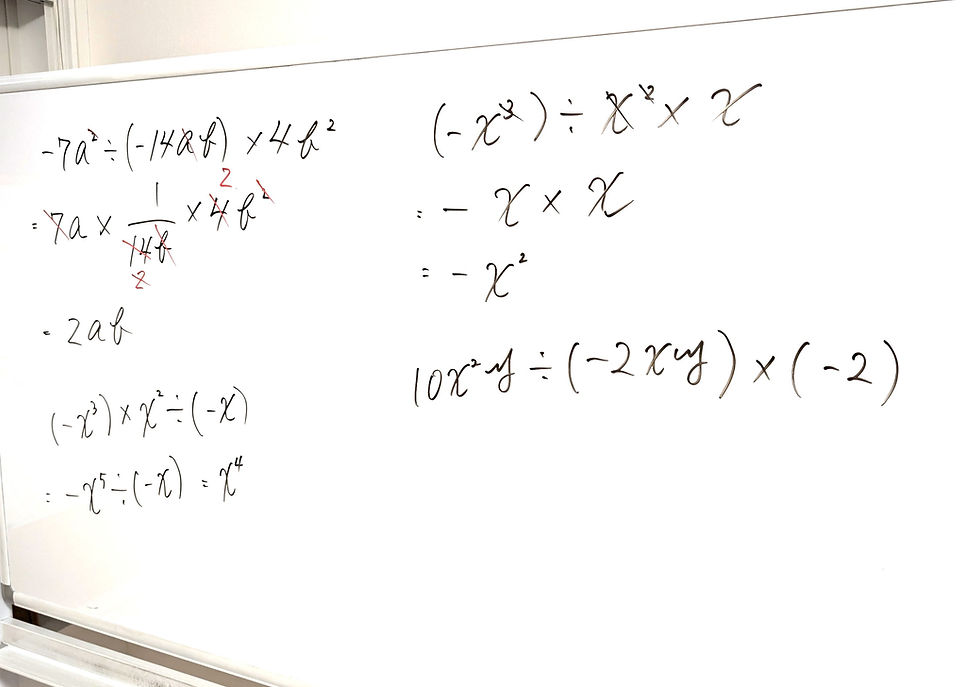 -7a²÷(-14ab)×4b²
2
=7a×1/14b×4b²
2
=2ab
(-x³)×x²÷(-x)
=-x⁵÷(-x)=x⁴
(-x³)÷x²×x
=-x×x
=-x²
10x²y÷(-2xy)×(-2)